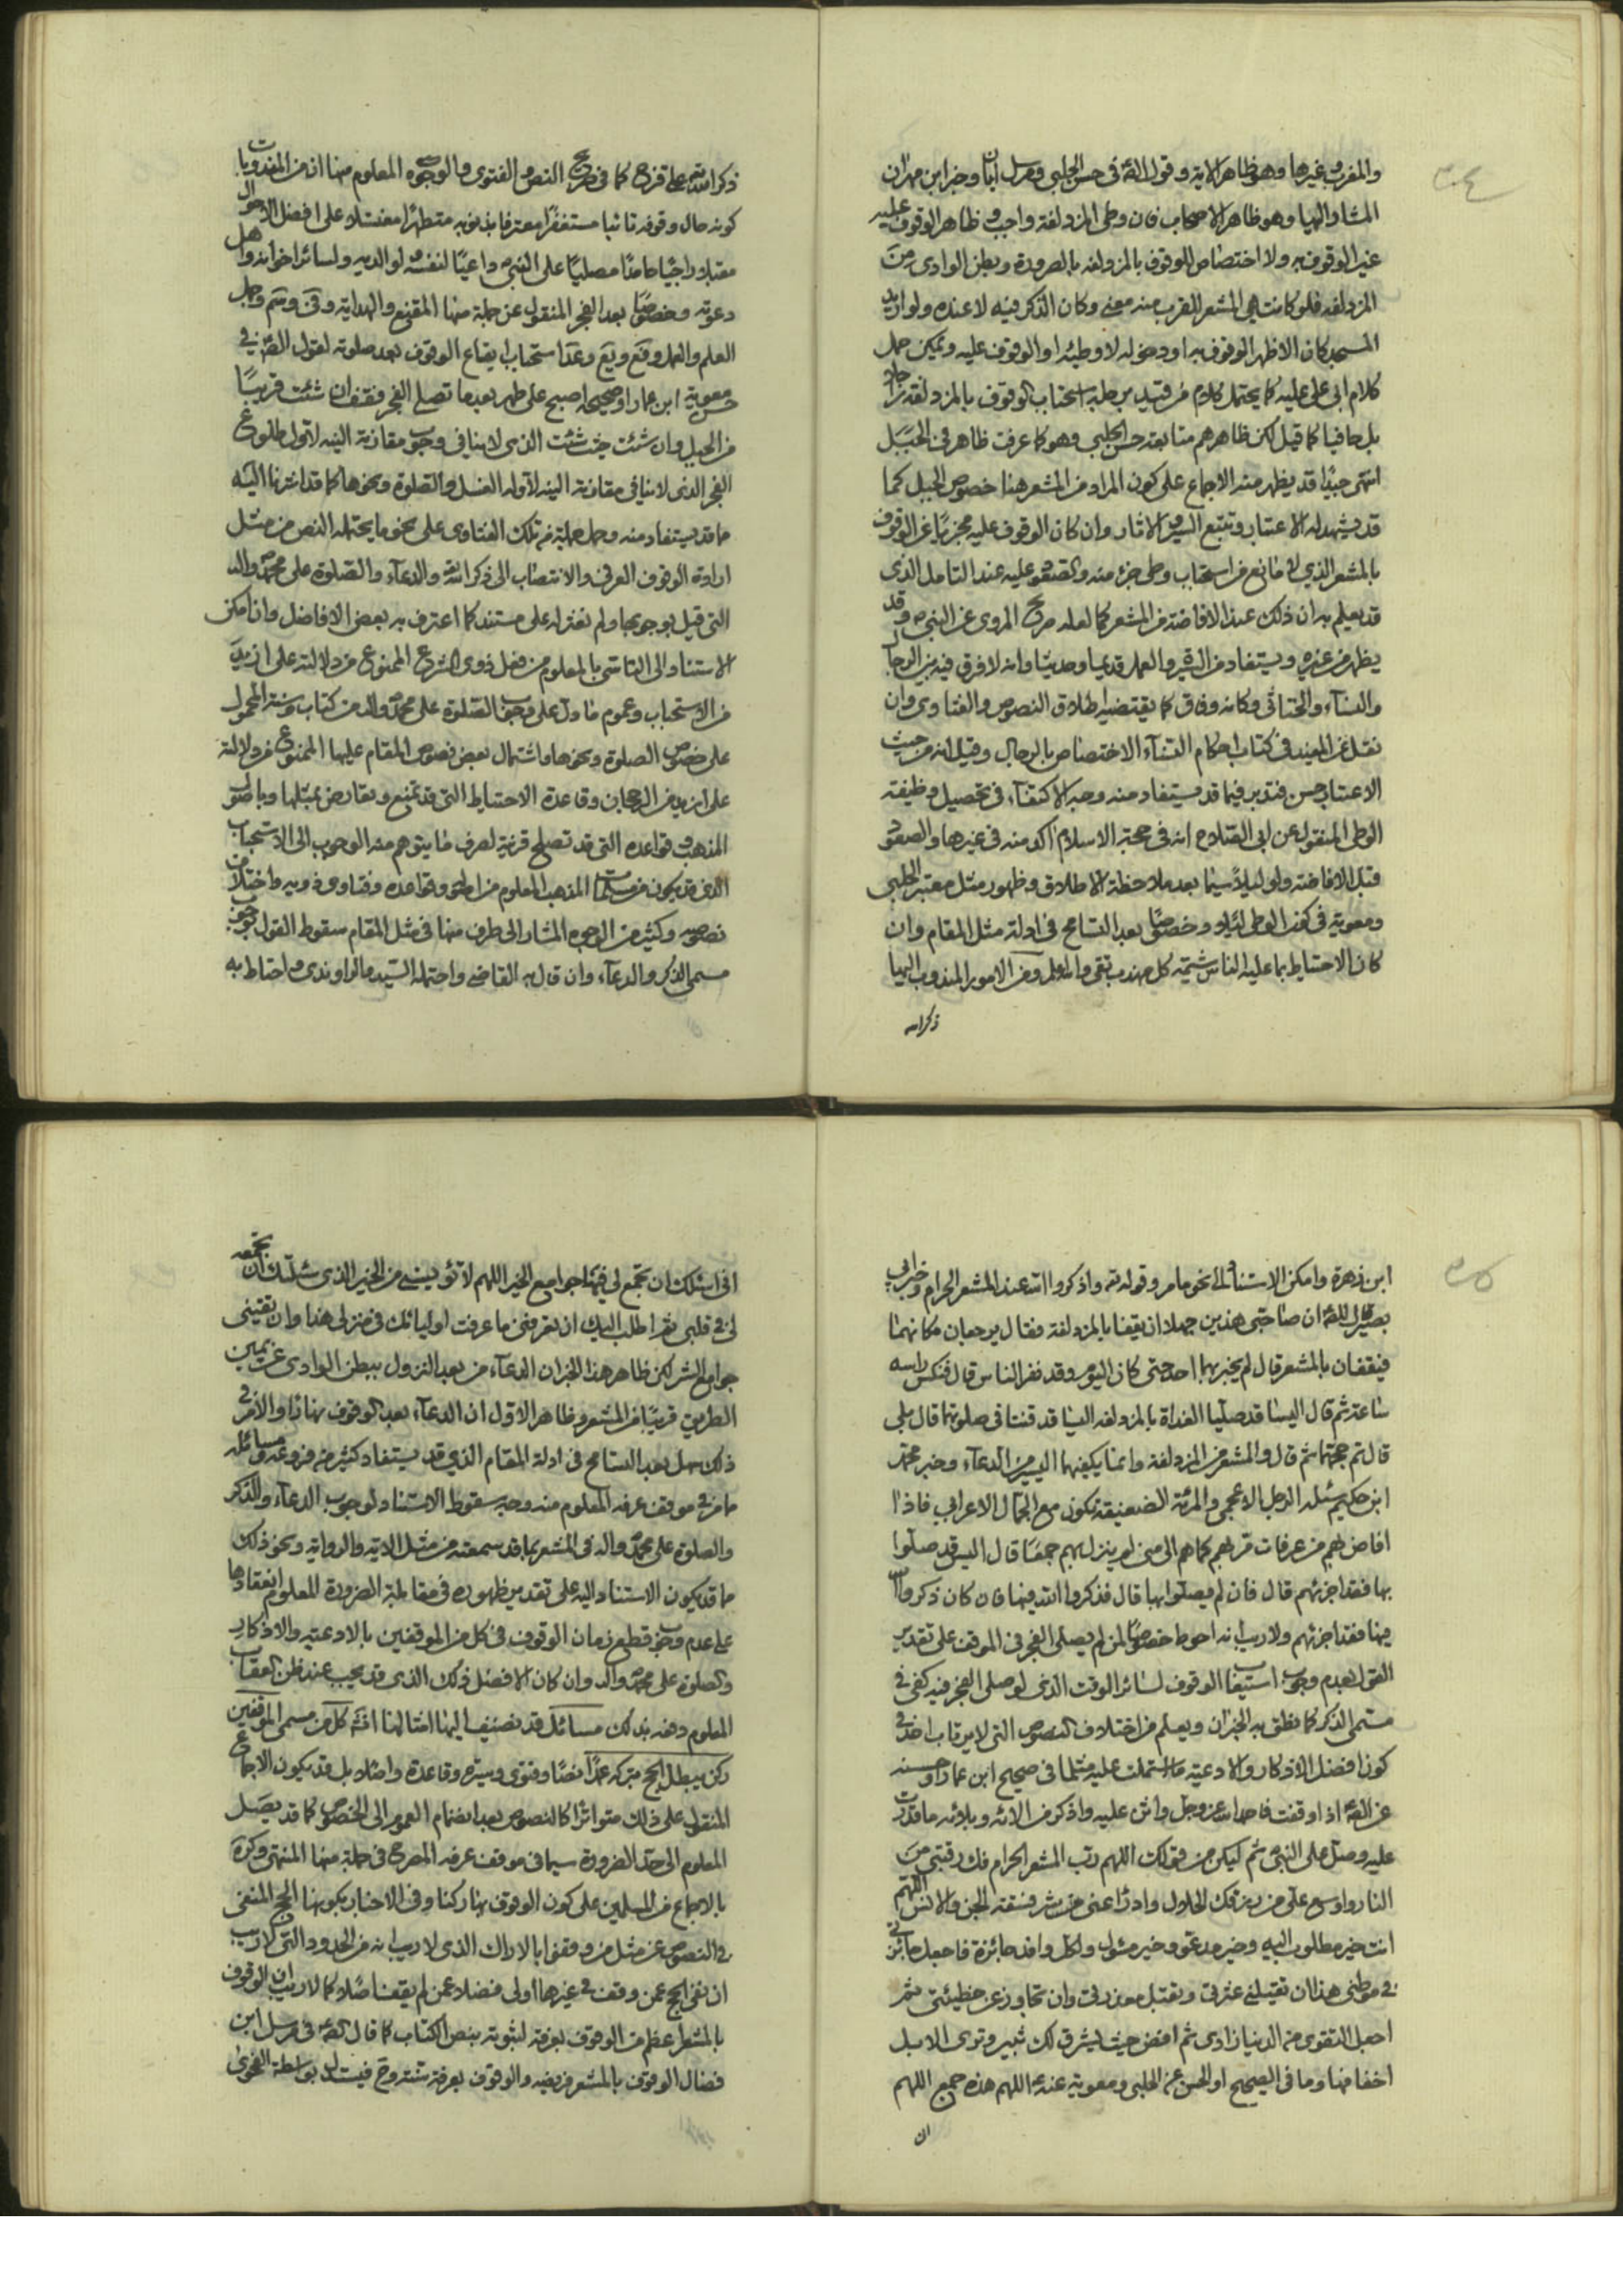 والمغرب وغيرها وهو ظاهر الاية وقوله في حسن الحلبي ومرسل ابان وخبر ابن مهران
المشار اليها وهو ظاهر الاصحاب فان وطى المزدلفة واجب وظاهر الوقوف عليه
غير الوقوف به ولا اختصاص للوقوف بالمزدلفه بالصرورة وبطن الوادى من
المزدلفه فلو كانت هي المشعر للقرب منه معنى وكان الذكر فيه لا عنده ولو اريد
المسجد كان الاظهر الوقوف به او دخوله لا وطيه او الوقوف عليه ويمكن حمل
كلام ابى على عليه كما يحتمل كلام من قيد من حلبه استحباب الوقوف بالمزدلفة
بل حافيا كما قيل لكن ظاهرهم متابعة حسن الحلبي وهو كما عرفت ظاهر في الجبل
انتهى جيدا قد يظهر منه الاجماع على كون المراد من المشعر هنا خصوص الجبل كما
قد يشهد له الاعتبار وتتبع السير والاثار وان كان الوقوف عليه مجزيا عن الوقوف
بالمشعر الذي لا مانع من استحباب وطى جزء منه والصعود عليه عند التامل الذى
قد يعلم به ان ذلك عند الافاضة من المشعر كما لعله صريح المروى عن النبي ص وقد
يظهر من غيره ويستفاد من السيرة والعمل قديما وحديثا وانه لا فرق فيه بين الرجال
والنساء والخناثى وكانه وفاق كما يقتضيه اطلاق النصوص والفتاوى وان
نقل عن المفيد في كتاب احكام النساء الاختصاص بالرجال وقيل انه من حيث
الاعتبار حسن فتدبر فيما قد يستفاد منه وجه الاكتفاء في تحصيل وظيفة
الوطى المنقول عن ابى الصلاح انه في حجة الاسلام اكد منه في غيرها والصعود
قبل الافاضة ولو ليلا سيما بعد ملاحظة الاطلاق وظهور مثل معتبر الحلبي
ومعوية في كفاية الوطى ليلا وخصوصا بعد التسامح في ادلة مثل المقام وان
كان الاحتياط بما عليه الناس شيمة كل مهذب تقى والله اعلم ومن الامور المندوب اليها
ذكر الله
ذكر الله تعالى على قزح كما في صريح النص والفتوى والوجوه المعلوم منها ان من المندوبات
كونه حال وقوفه تائبا مستغفرا معترفا بذنوبه متطهرا مغتسلا على افضل الاحوال
مقبلا راجيا حامدا مصليا على النبي ص داعيا لنفسه ولوالديه ولسائر اخوانه واهل
دعوته وخصوصا بعد الفجر المنقول عن جملة منها المقنع والهداية
العلم والعمل وقع ويع وغدا استحباب ايقاع الوقوف بعد صلوته لقول الص في
حسن معوية ابن عمار او صحيحه اصبح على طهر بعد ما تصلي الفجر فقف ان شئت قريبا
من الجبل وان شئت حيث شئت الذى لا ينافي وجوب مقارنة النيه لاول طلوع
الفجر الذى لا ينافي مقارنة النيه لاوله الغسل والصلوة ونحوها كما قد اشرنا اليه
ما قد يستفاد منه وحمل جملة من تلك الفتاوى على نحو ما يحتمله النص من مثل
ارادة الوقوف العرفي والانتصاب الى ذكر الله والدعاء والصلوة على محمد واله
التى قيل بوجوبها ولم نعثر له على مستند كما اعترف به بعض الافاضل وان امكن
الاستناد الى التاسى بالمعلوم من فعل ذوى الشرع الممنوع من دلالته على ازيد
من الاستحباب وعموم ما دل على وجوب الصلوة على محمد واله من كتاب وسنة المحمول
على خصوص الصلوة ونحوها واشتمال بعض نصوص المقام عليها الممنوع من دلالته
على ازيد من الرجحان وقاعدة الاحتياط التى قد تمنع وتعارض بمثلها وباصول
المذهب وقواعده التى قد تصلح قرينة لصرف ما يتوهم منه الوجوب الى الاستحباب
الذى قد يكون من مسلمات المذهب المعلوم من اصوله وقواعده وفتاوى ذويه واختلاف
نصوصه وكثير من الوجوه المشار الى طرف منها في مثل المقام سقوط القول بوجوب
مسمى الذكر والدعاء وان قال به القاضى واحتمله السيد والراوندى واحتاط به
ابن زهرة وامكن الاستناد الى نحو ما مر وقوله تعالى واذكروا الله عند المشعر الحرام وخبر ابى
بصير قال للص ان صاحبى هذين جهلا ان يقفا بالمزدلفة فقال يرجعان مكانهما
فيقفان بالمشعر قال لم يخبرهما احد حتى كان اليوم وقد نفر الناس قال فنكس راسه
ساعة ثم قال اليسا قد صليا الغداة بالمزدلفه اليسا قد قنتا في صلوتهما قال بلى
قال تم حجهما ثم قال والمشعر من المزدلفة وانما يكفيهما اليسير من الدعاء وخبر محمد
ابن حكيم سئله الرجل الاعجمي والمرئة الضعيفة تكون مع الجمال الاعرابي فاذا
افاض بهم من عرفات مر بهم كما هم الى منى لم ينزل بهم جمعا قال اليس قد صلوا
بها فقد اجزئهم قال فان لم يصلوا بها قال فذكروا الله فيها فان كان ذكروا الله
فيها فقد اجزئهم ولا ريب انه احوط خصوصا لمن لم يصلى الفجر في الموقف على تقدير
القول بعدم وجوب استيفا الوقوف لسائر الوقت الذى لو صلى الفجر فيه كفى في
مسمى الذكر كما نطق به الخبران ويعلم من اختلاف النصوص التى لا يرتاب احد في
كون افضل الاذكار والادعية ما اشتملت عليه مثلما في صحيح ابن عمار او حسنه
عن الص اذا وقفت فاحمد الله عز وجل واثن عليه واذكر من الائه وبلائه ما قدرت
عليه وصل على النبي ص ثم ليكن من قولك اللهم رب المشعر الحرام فك رقبتى من
النار واوسع على من رزقك الحلال وادرأ عنى من شر فسقة الجن والانس اللهم
انت خير مطلوب اليه وخير مدعو وخير مسئول ولكل وافد جائزة فاجعل جائزتى
في موطنى هذا ان تقيلنى عثرتى وتقبل معذرتى وان تجاوز عن خطيئتى ثم
اجعل التقوى من الدنيا زادى ثم افض حيث يشرق لك ثبير وترى الابل
اخفافها وما في الصحيح او الحسن عن الحلبي ومعوية عنه اللهم هذه جمع اللهم
ان
انى اسئلك ان تجمع لى فيها جوامع الخير اللهم لا تؤيسنى من الخير الذى سئلتك ان تجمعه
لى في قلبى ثم اطلب اليك ان تعرفنى ما عرفت اوليائك في منزلى هذا وان تقينى
جوامع الشر لكن ظاهر هذا الخبر ان الدعاء من بعد النزول ببطن الوادى عن يمين
الطريق قريبا من المشعر وظاهر الاول ان الدعاء بعد الوقوف نهارا والامر في
ذلك سهل بعد التسامح في ادلة المقام الذي قد يستفاد كثير من فروعه ومسائله
مما مر في موقف عرفه المعلوم منه وجه سقوط الاستناد لوجوب الدعاء والذكر
والصلوة على محمد واله في المشعر بما قد سمعته من مثل الاية والرواية ونحو ذلك
مما قد يكون الاستناد اليه على تقدير ظهوره في مقابلة الضرورة المعلوم انعقادها
على عدم وجوب قطع زمان الوقوف في كل من الموقفين بالادعية والاذكار
والصلوة على محمد واله وان كان الافضل ذلك الذى قد يجب عند ظن العقاب
المعلوم دفعه بذلك مسائل قد نضيف اليها امثالها الاولى كل من مسمى الموقفين
ركن يبطل الحج بتركه عمدا نصا وفتوى وسيرة وقاعدة واصلا بل قد يكون الاجماع
المنقول على ذلك متواترا كالنصوص بعد انضمام العموم الى الخصوص كما قد يصل
المعلوم الى حد الضرورة سيما في موقف عرفه المصرح في جملة منها المنتهى وكره
بالاجماع من المسلمين على كون الوقوف بها ركنا وفي الاخبار بكونها الحج المنفى
في النصوص عن مثل من وقفوا بالاراك الذى لا ريب انه من الحدود التى لا ريب
ان نفى الحج عمن وقف في غيرها اولى فضلا عمن لم يقف اصلا كما لا ريب ان الوقوف
بالمشعر اعظم من الوقوف بعرفه لثبوته بنص الكتاب كما قال الص في مرسل ابن
فضال الوقوف بالمشعر فريضه والوقوف بعرفة سنه وح فيستدل بواسطة الفحوى